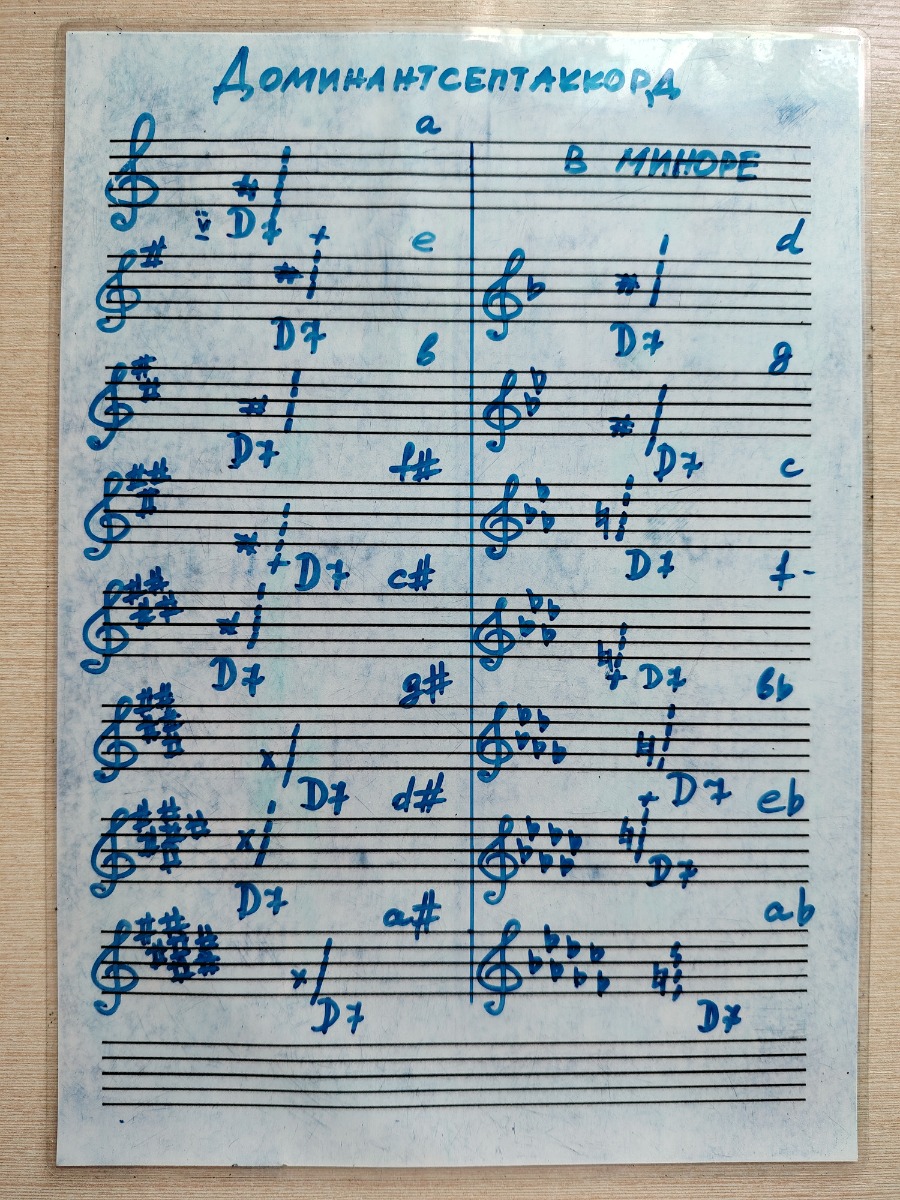 ДОМИНАНТСЕПТАККОРД
a
В МИНОРЕ
V D7
e
d
D7
D7
b
g
D7
D7
f#
c
D7
D7
c#
f
D7
D7
g#
bb
D7
D7
d#
eb
D7
D7
a#
ab
D7
D7